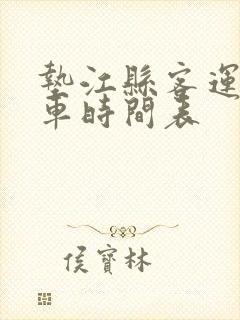 墊江縣客運
車時間表
侯寶林